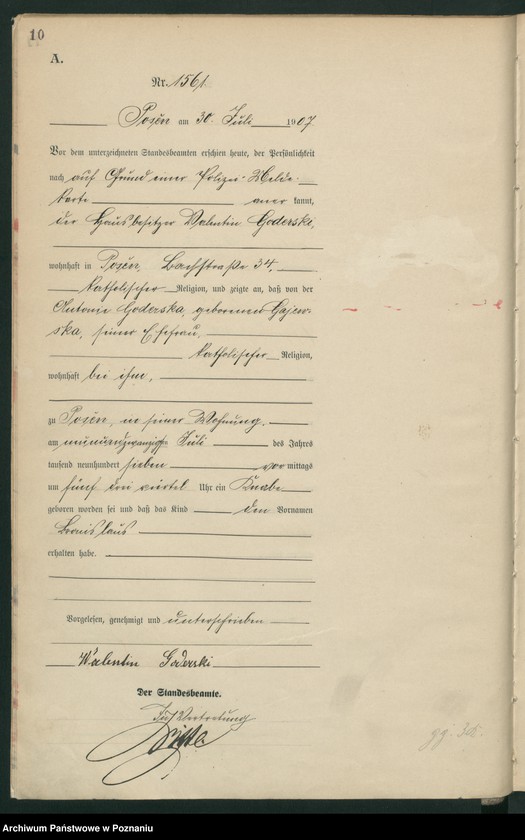 10
A.
Nr. 1561.
Posen am 30. Juli 1907
Vor dem unterzeichneten Standesbeamten erschien heute, der Persönlichkeit
nach auf Grund einer Polizei-Melde-
karte anerkannt,
der Hausbesitzer Valentin Goderski,
wohnhaft in Posen, Bachstraße 34,
katholischer Religion, und zeigte an, daß von der
Antonie Goderska, geborenen Gajew-
ska, seiner Ehefrau,
katholischer Religion,
wohnhaft bei ihm,
zu Posen, in seiner Wohnung,
am neunundzwanzigsten Juli des Jahres
tausend neunhundert sieben vormittags
um fünf drei viertel Uhr ein Knabe
geboren worden sei und daß das Kind den Vornamen
Bronislaus
erhalten habe.
Vorgelesen, genehmigt und unterschrieben
Walentin Goderski
Der Standesbeamte.
In Vertretung
Archiwum Państwowe w Poznaniu